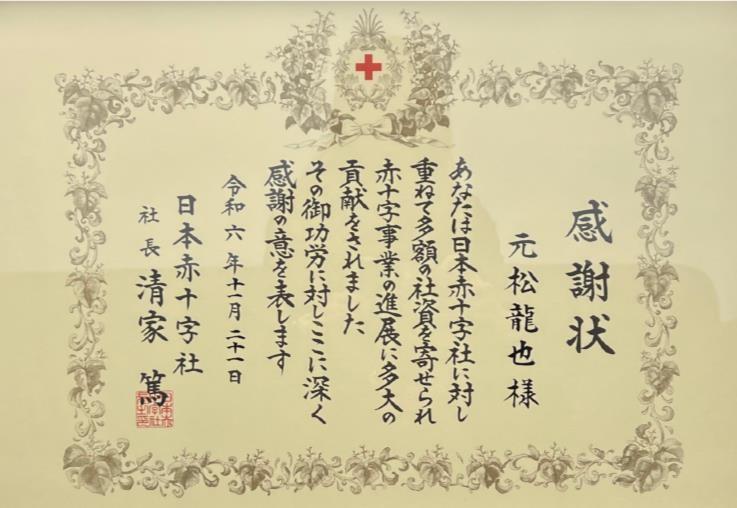 感謝状
元松龍也様
あなたは日本赤十字社に対し
重ねて多額の社資を寄せられ
赤十字事業の進展に多大の
貢献をされました
その御功労に対しここに深く
感謝の意を表します
令和六年十一月二十一日
日本赤十字社
社長 清家 篤